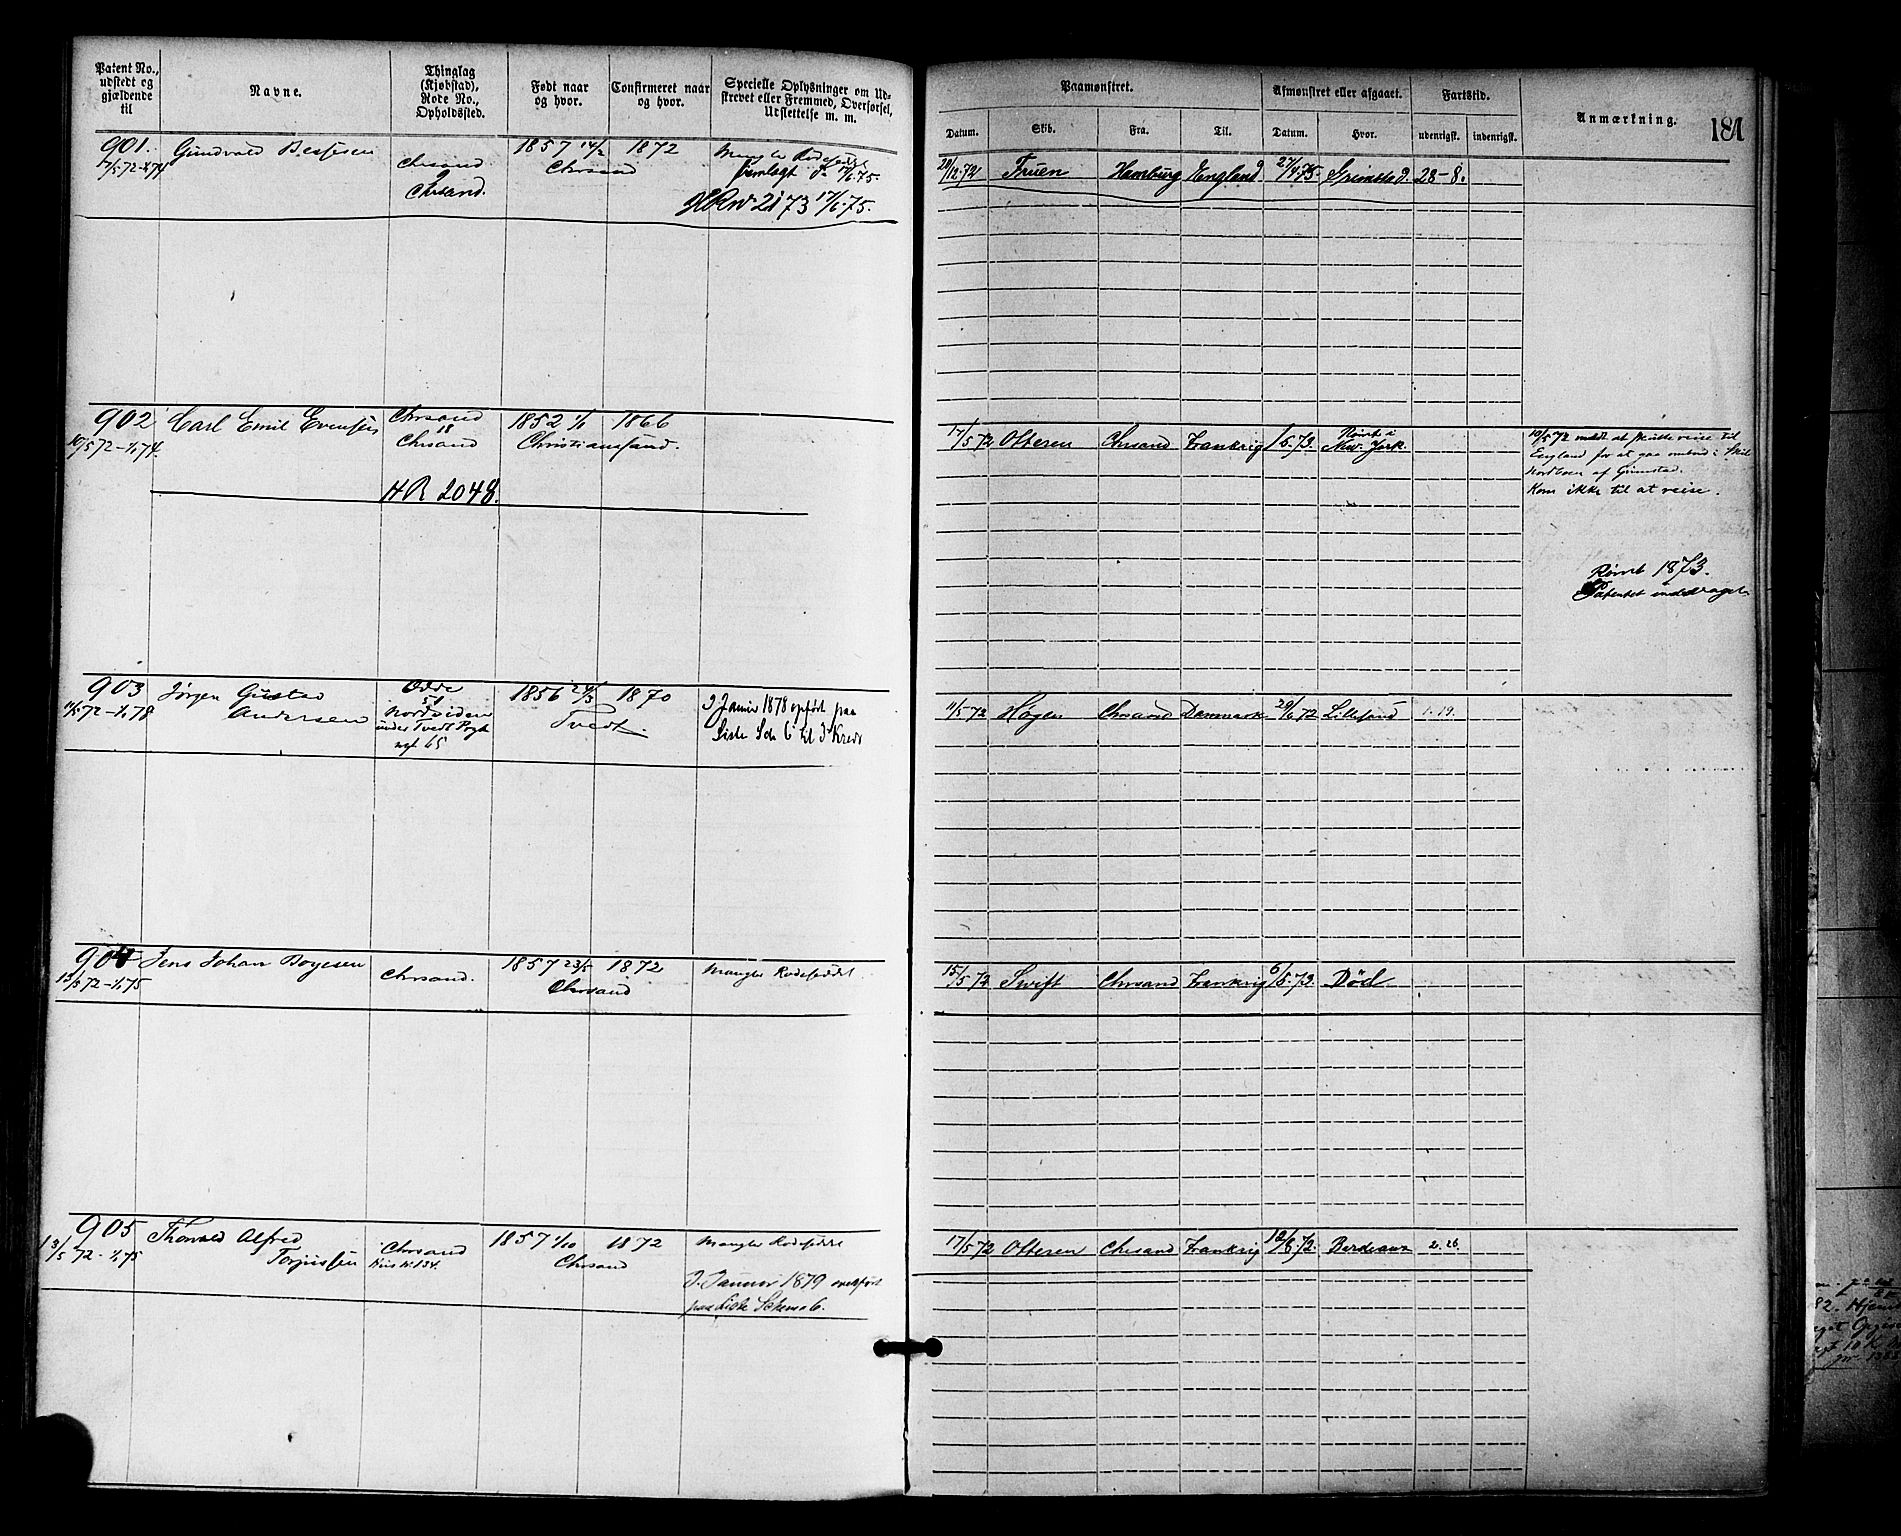 Patent No., udstedt og gjældende til
Navne.
Thinglag (Kjøbstad), Rode No., Opholdssted.
Født naar og hvor.
Confirmeret naar og hvor.
Specielle Oplysninger om Udskrevet eller Fremmed, Overførsel, Udslettelse m. m.
Paamønstret.
Datum.
Skib.
Fra.
Til.
Afmønstret eller afgaaet.
Datum.
Hvor.
Fartstid.
udenrigsk.
indenrigsk.
Anmærkning.
181
901.
7/5 72-1/1 74
Gundvald Bessesen
Chrsand
9
Chrsand.
1857 14/2 1872
Chrsand
Mangler Rodeseddel
fremlagt d. 17/6 75
HR No 2173 17/6 75.
20/12 72 Fruen Hamburg England 27/4 75 Grimstad. 28-8.
902
10/5 72-1/1 74.
Carl Emil Evensen
Chrsand
18
Chrsand
HR 2048.
1852 1/11 1866
Christianssand.
17/5 72 Otteren Chrsand Frankrig 1/5 73. Rømt i New York.
10/5 72 meldt at skulle reise til
England for at gaa ombord i Skib
af Grimstad.
Kom ikke til at reise.
Rømt 1873.
Patentet inddraget
903
11/5 72-1/1 78
Jørgen Gustav
Andersen
Odde
51
under Tvedt
65
1856 24/3 1870
Tvedt.
I Januar 1878 opført paa
Liste Sch 6 til 3 Kreds
11/5 72 Hägen Chrsand Danmark 20/6 72 Lillesand 1.19.
904
13/5 72-1/1 75
Jens Johan Boyesen
Chrsand.
1857 23/5 1872
Chrsand
Mangler Rodeseddel
15/5 72 Swift Chrsand Frankrig 6/5 73. Död
905
13/5 72-1/1 75
Thorvald Alfred
Torjussen
Chrsand
Hus No 134.
1857 1/10 1872
Chrsand
Mangler Rodeseddel
I Januar 1879 overført
paa Liste Schema 6.
17/5 72 Otteren Chrsand Frankrig 12/8 72. Bordeaux 2.26.